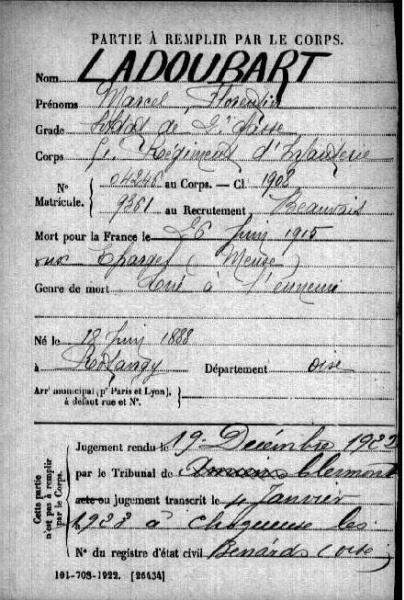 PARTIE À REMPLIR PAR LE CORPS.
Nom LADOUBART
Prénoms Marcel Florentin
Grade Soldat de 2e classe
Corps Régiment d'Infanterie
N° Matricule. 04246 au Corps. — Cl. 1908
9361 au Recrutement Beauvais
Mort pour la France le 26 Juin 1915
aux Eparges (Meuse)
Genre de mort Tué à l'ennemi
Né le 18 Juin 1888
à Département Oise
Arrt municipal (pr Paris et Lyon), à défaut rue et N°.
Cette partie n'est pas à remplir par le Corps.
Jugement rendu le 19 Décembre 1922
par le Tribunal de Clermont
acte ou jugement transcrit le 4 Janvier
1923 à Choqueuse les
N° du registre d'état civil Bénards (Oise)
101-708-1922. [26434]